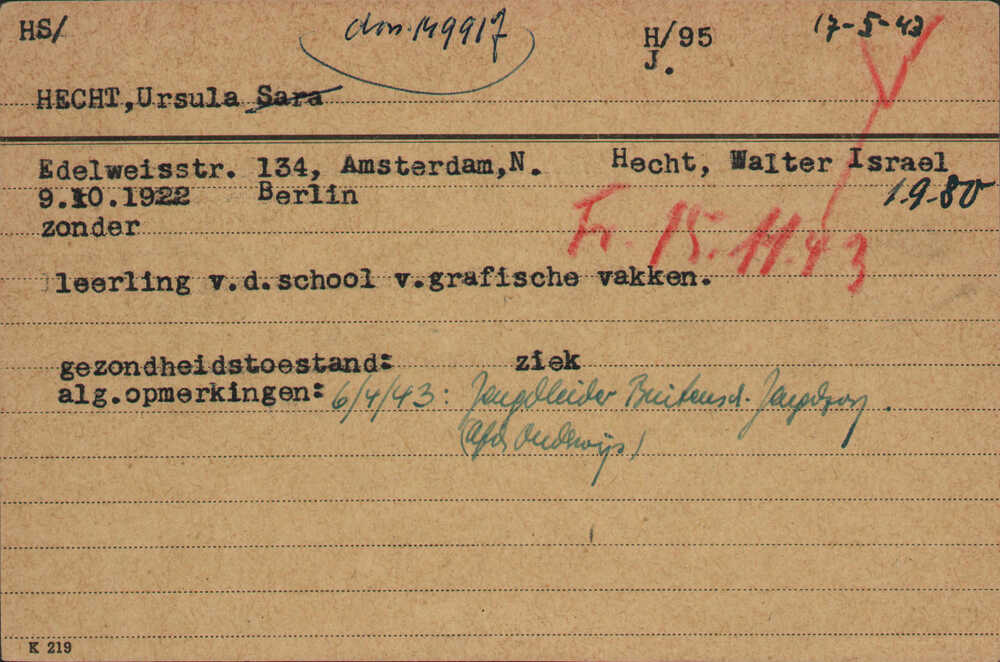 HS/ dos. 149917 H/95 17-5-43
J.
HECHT,Ursula Sara
Edelweisstr. 134, Amsterdam,N. Hecht, Walter Israel
9.10.1922 Berlin 1.9.80
zonder
Fr. 15.11.43
leerling v.d.school v.grafische vakken.
gezondheidstoestand: ziek
alg.opmerkingen: 6/4/43: Jeugdleider Buitensch. Jeugdzorg.
(Afd. Onderwijs)
K 219